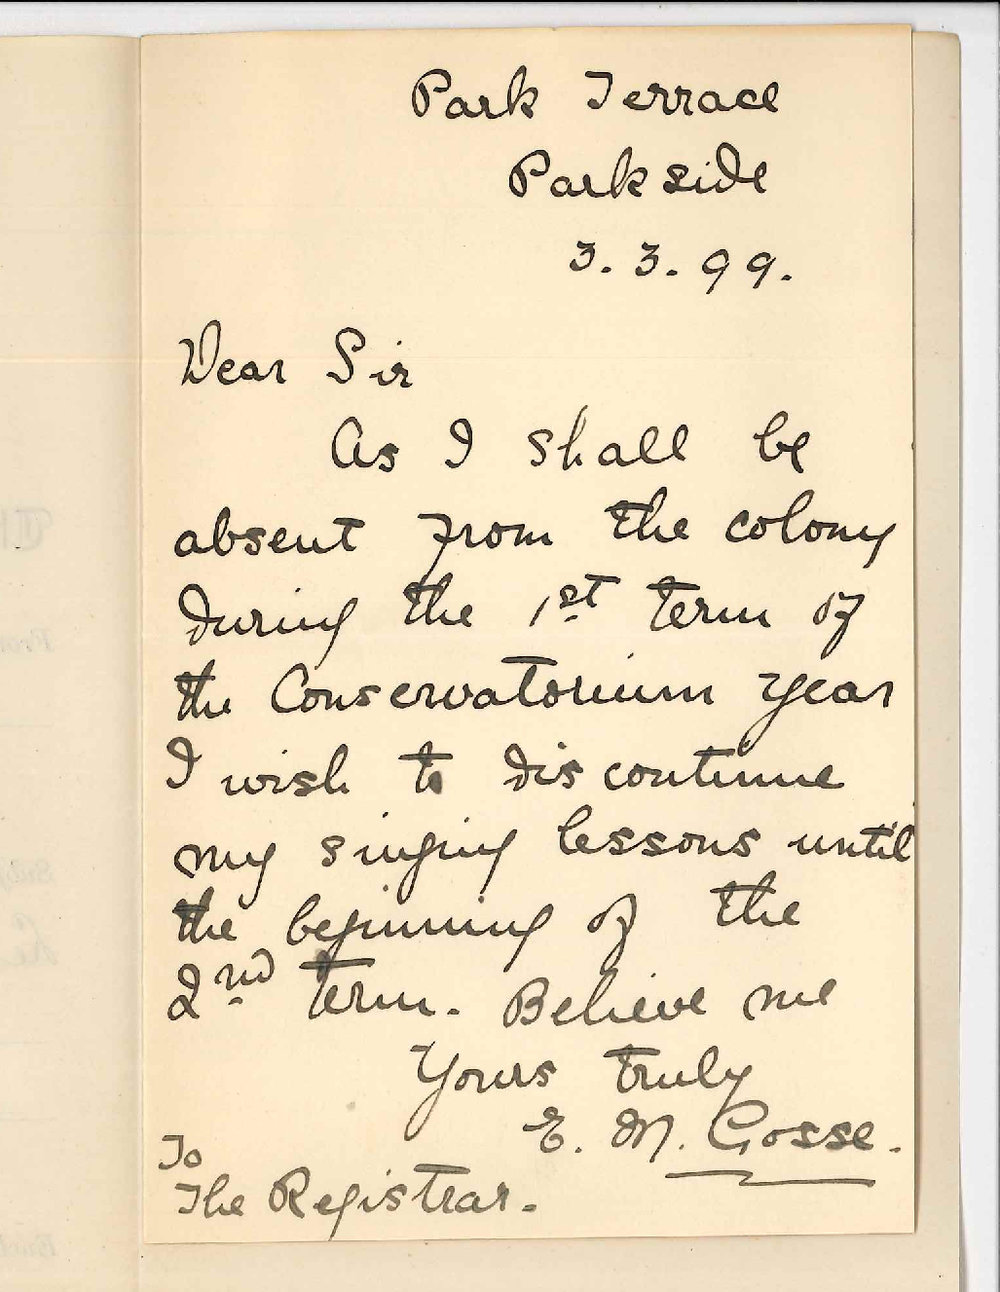 Park Terrace
Parkside
3.3.99.
Dear Sir
As I shall be
absent from the colony
during the 1st term of
the Conservatorium year
I wish to discontinue
my singing lessons until
the beginning of the
2nd term. Believe me
Yours truly
E. M. Gosse.
To
The Registrar.